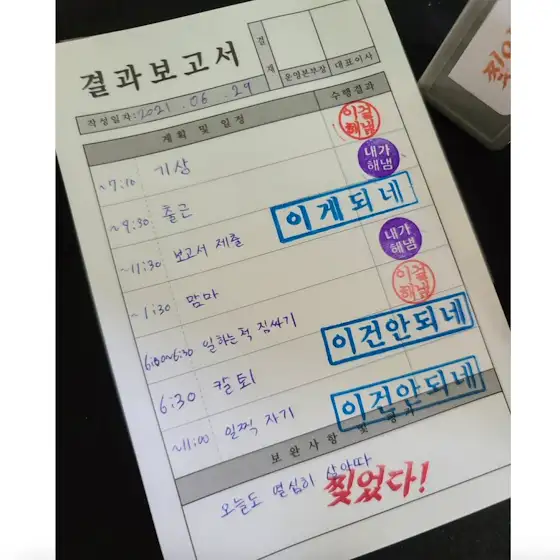 결과보고서
결재
운영본부장 대표이사
작성일자: 2021 . 06 . 29
계획 및 일정 수행결과
~7:10 기상 이걸해냄
~9:30 출근 내가해냄
~11:30 보고서 제출 이게되네
~1:30 맘마 내가해냄
6:00~6:30 일하는척 짐싸기 이걸해냄
6:30 칼퇴 이건안되네
~11:00 일찍 자기 이건안되네
보완사항 및
오늘도 열심히 살아따
찢었다!
찢었